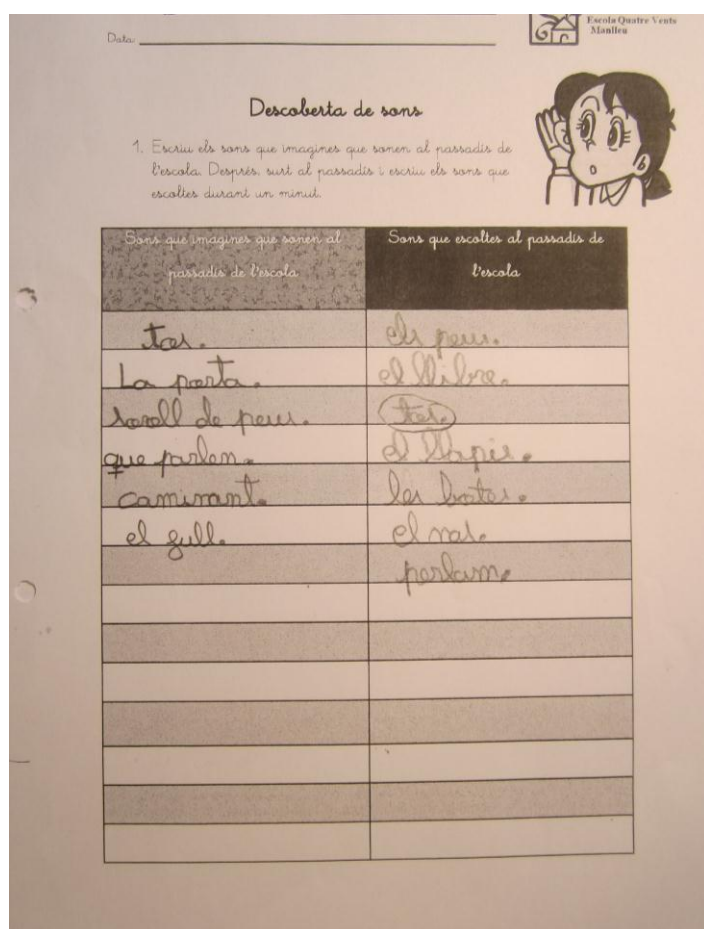 Escola Quatre Vents
Manlleu
Data:
Descoberta de sons
1. Escriu els sons que imagines que sonen al passadís de
l'escola. Després, surt al passadís i escriu els sons que
escoltes durant un minut.
Sons que imagines que sonen al
passadís de l'escola
Sons que escoltes al passadís de
l'escola
tos.
els peus.
La porta.
el llibre.
soroll de peus.
tos.
que parlen.
el llapis.
caminant.
les botes.
el full.
el nas.
parlam.